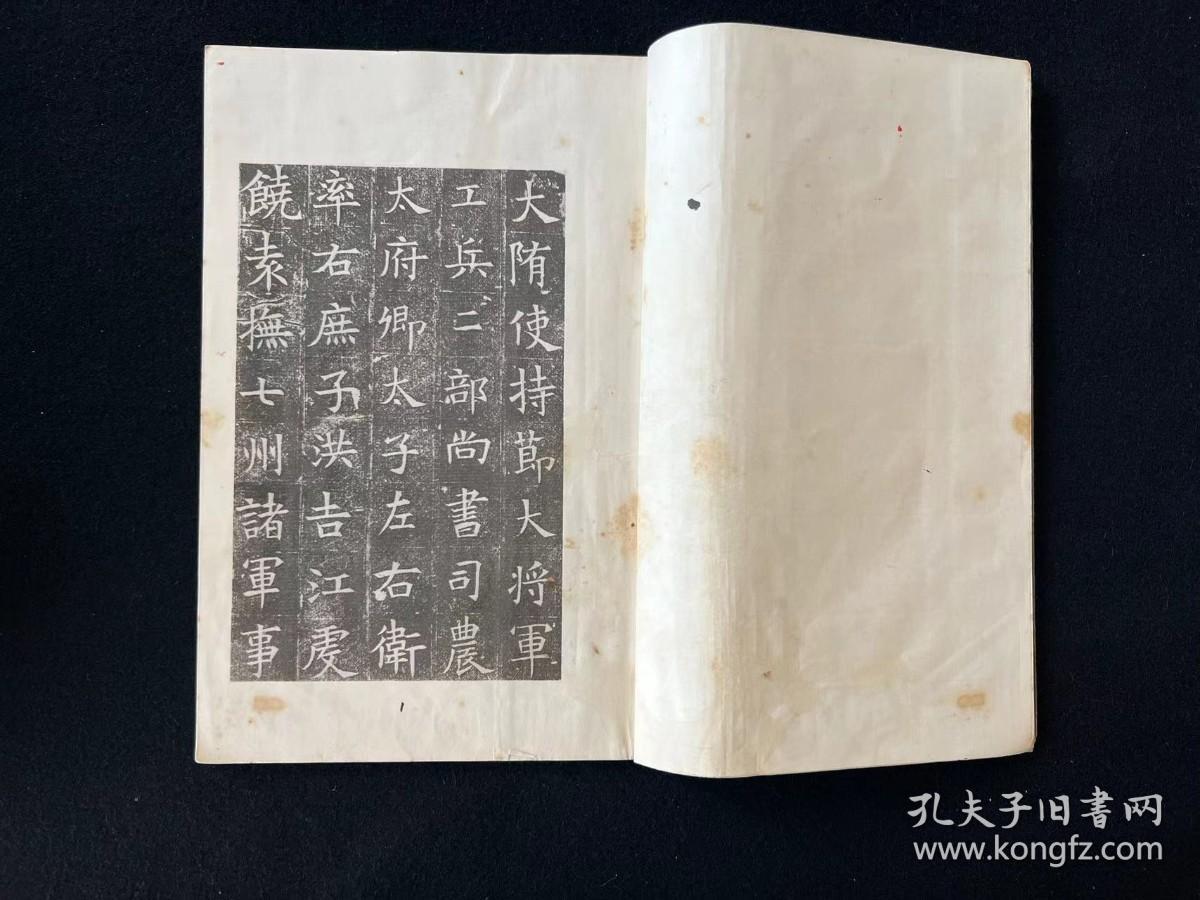 大隋使持節大将軍
工兵二部尚書司農
太府卿太子左右衛
率右庶子洪吉江虔
饒袁撫七州諸軍事
1
孔夫子旧书网
www.kongfz.com